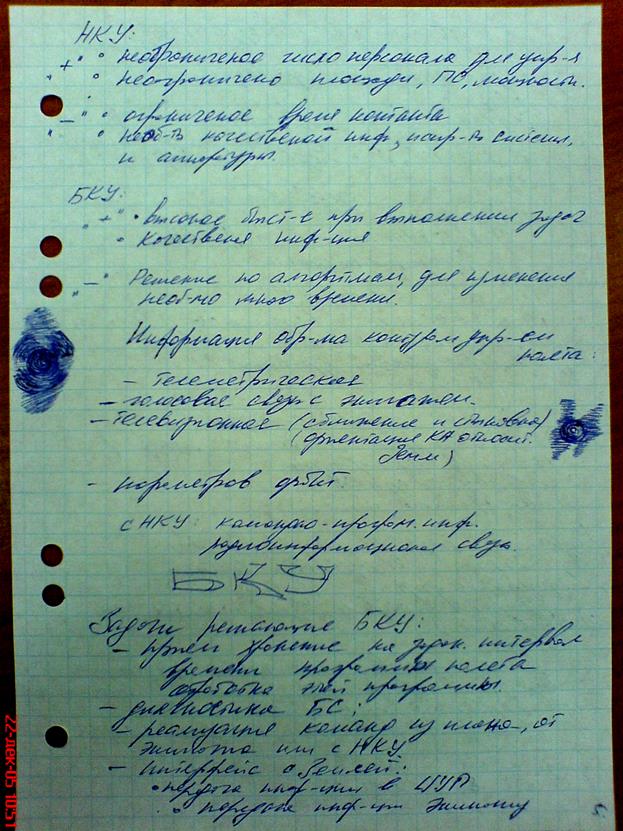 НКУ:
"+" • неограниченое число персонала для упр-я
" • неограничено площади, ПО, мощности.
"–" • ограниченое время контакта
" • необ-ть качественой инф., испр-ть системы,
и аппаратуры.
БКУ:
"+" • высокое быст-е при выполнении задач
• Качественя инф-ция
"–" Решение по алгоритмам, для изменения
необ-мо много времени.
Информация обр-ма контуром упр-ем
полета:
– телеметрическая
– голосовая связь с экипажем.
– телевизионная (сближение и стыковка)
(ориентация КА относит.
Земли)
– параметров орбит.
с НКУ: командно-програм. инф.
радиоинформационая связь.
БКУ
Задачи решающие БКУ:
– прием хранение на задан. интервал
времени программы полета
отработка этой программы.
– диагностика БС;
– реализация команд из плана, от
экипажа или с НКУ
– интерфейс с Землей:
• передача инф-ции в ЦУП
• передача инф-ции экипажу
5
22-дек-05 10:51